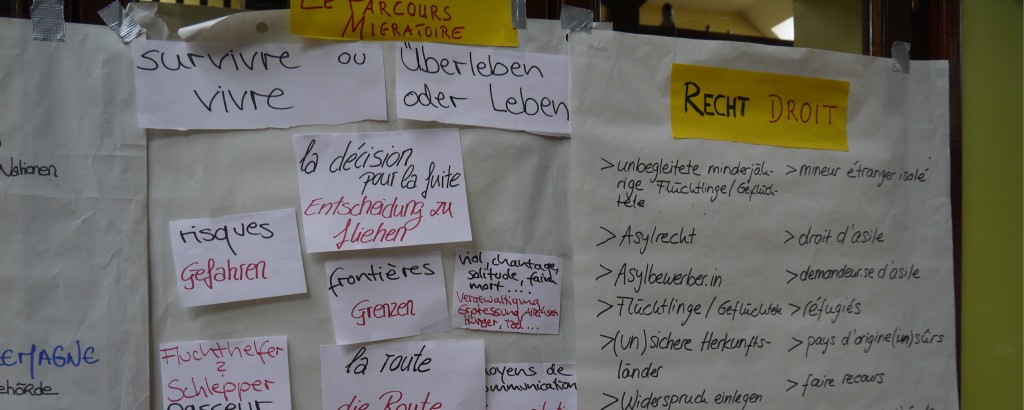 Nationen
EMAGNE
ehörde
LE PARCOURS
MIGRATOIRE
survivre ou
vivre
Überleben
oder Leben
la décision
pour la fuite
Entscheidung zu
fliehen
risques
Gefahren
frontières
Grenzen
viol, chantage,
solitude, faim
mort ....
Vergewaltigung
Erpressung,
Hunger, Tod ...
Fluchthelfer
Schlepper
passeur
la route
die Route
moyens de
communication
RECHT DROIT
> unbegleitete minderjäh- > mineur étranger isolé
rige Flüchtlinge/Geflüch-
tete
> Asylrecht > droit d'asile
> Asylbewerber.in > demandeur.se d'asile
> Flüchtlinge/Geflüchtete > réfugiés
> (un)sichere Herkunfts- > pays d'origine (un)sûrs
länder
> faire recours
> Widerspruch einlegen